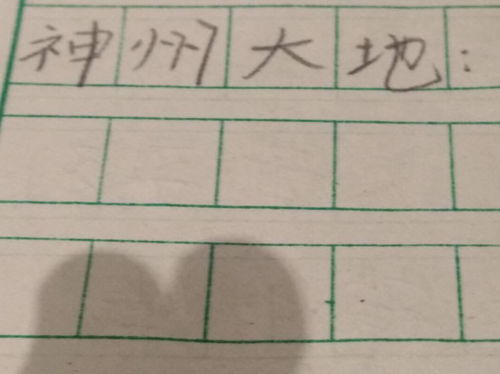 神州大地: